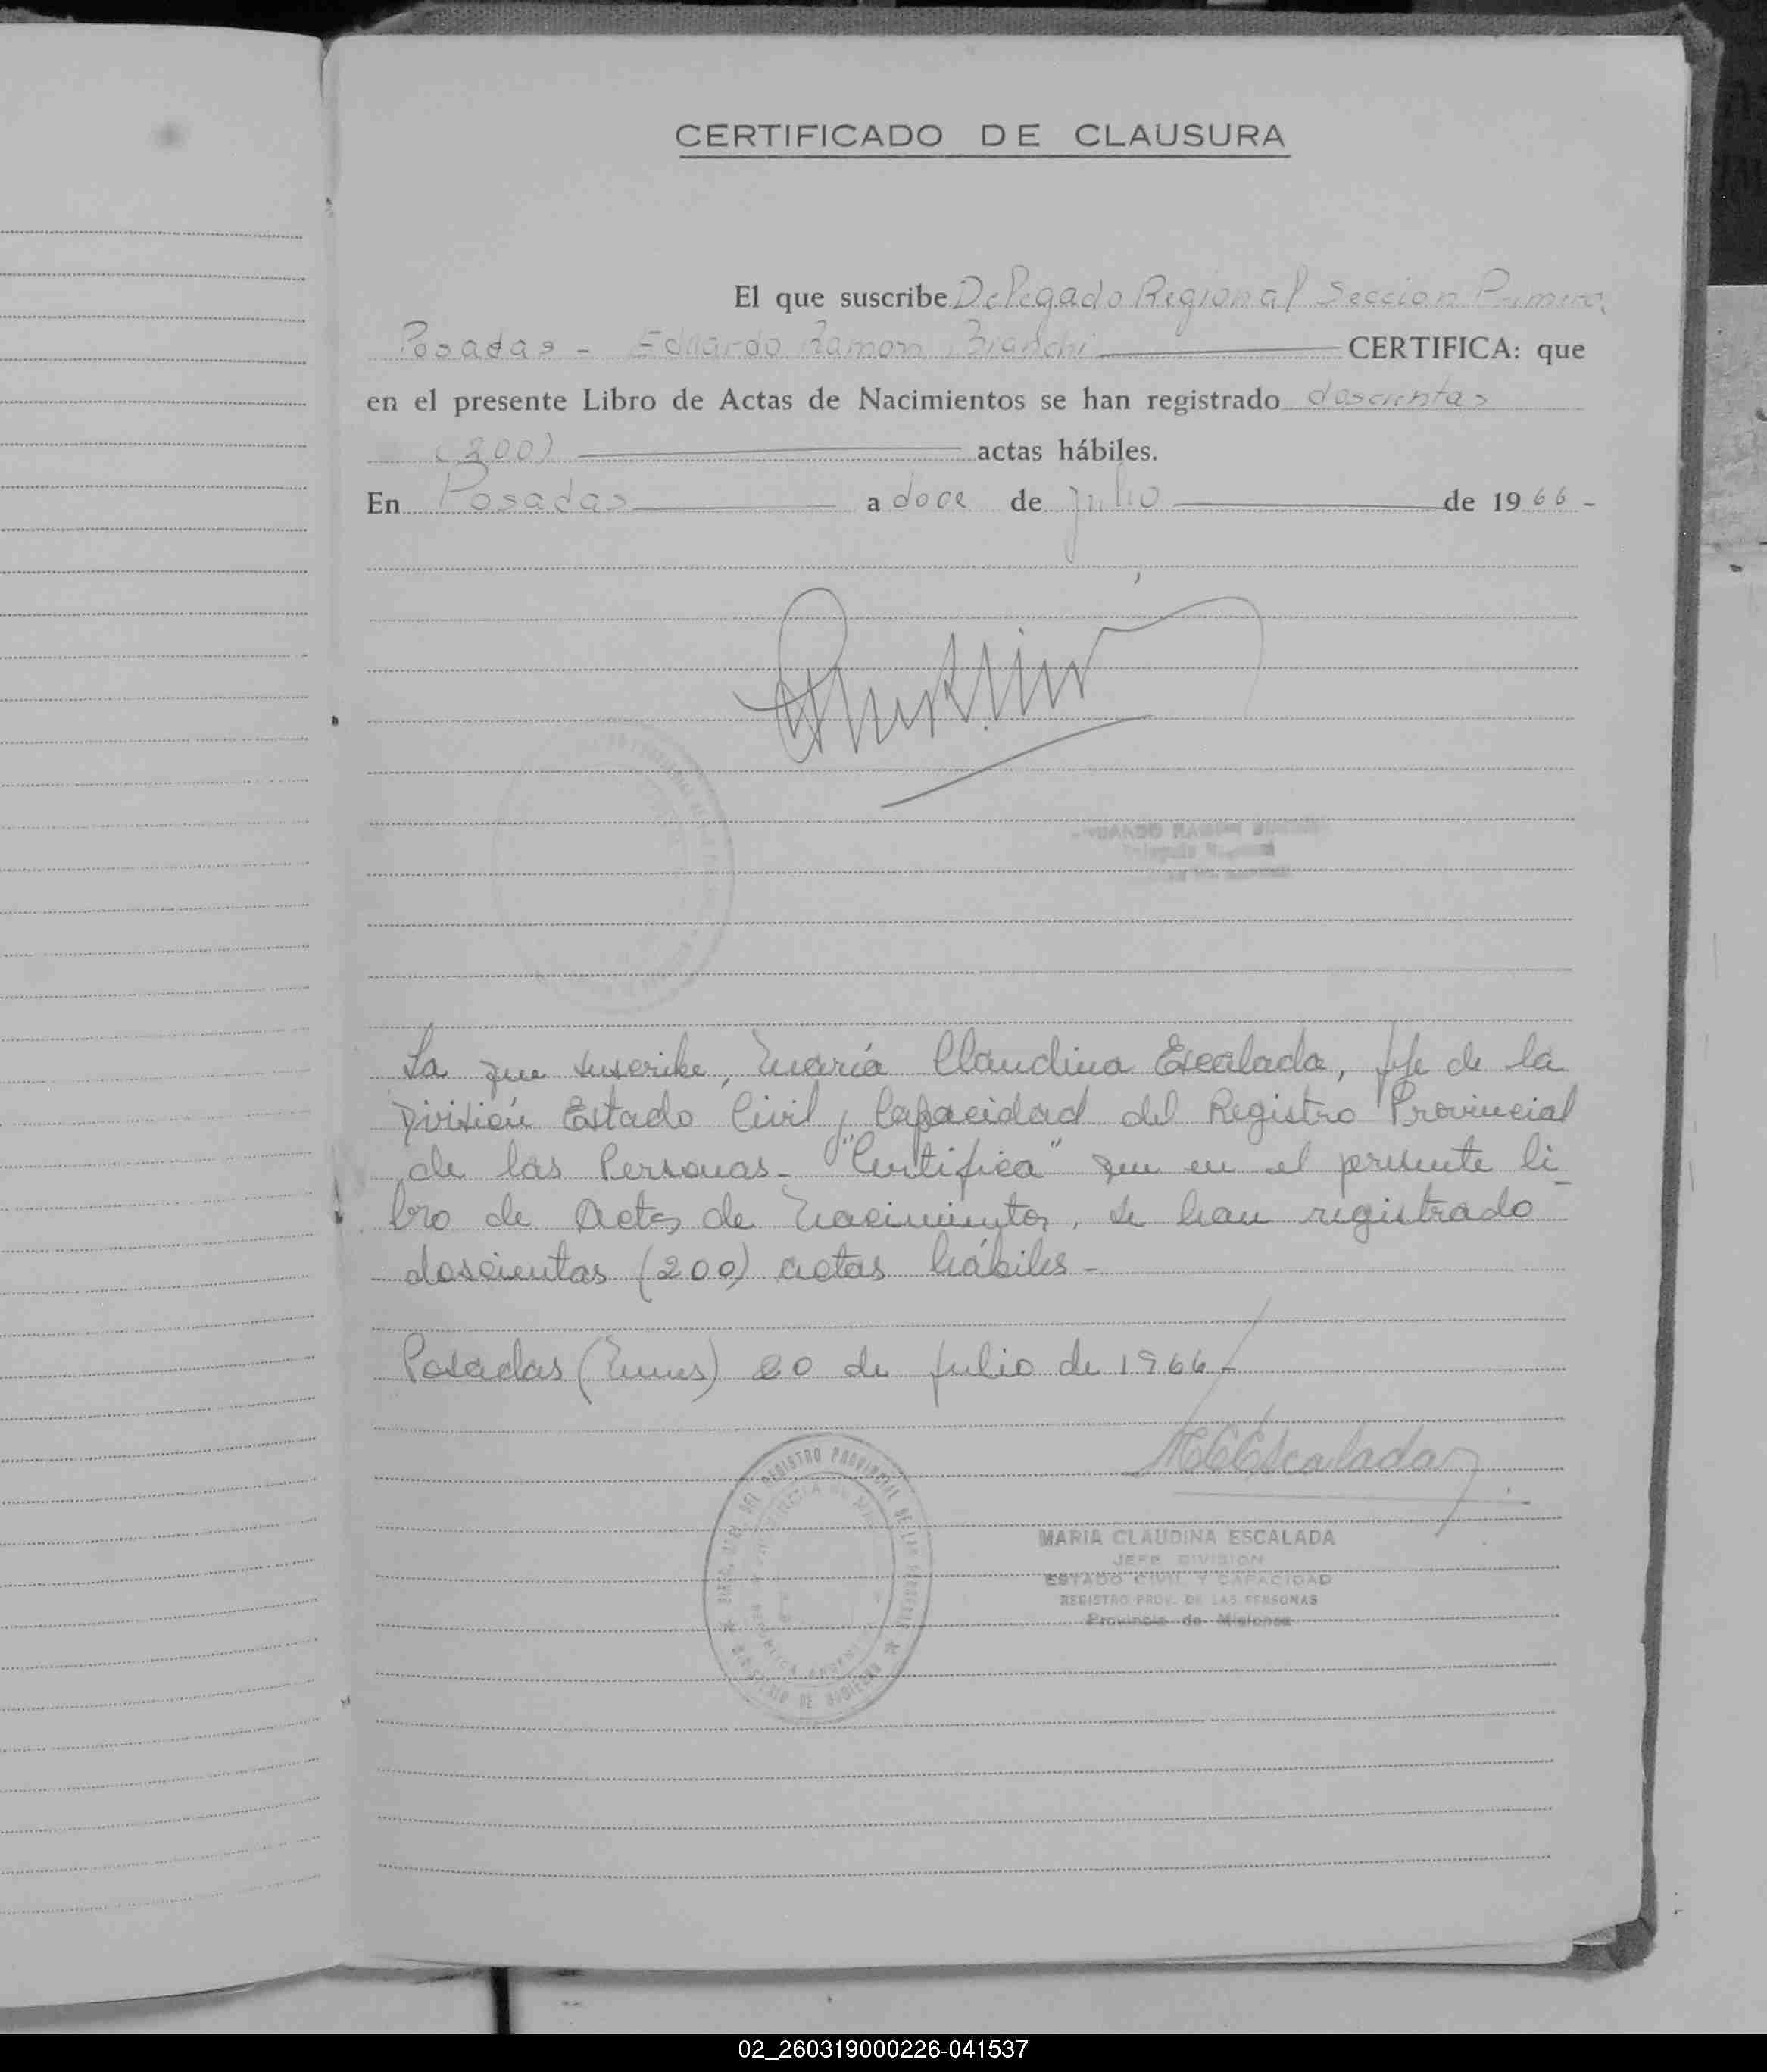 CERTIFICADO DE CLAUSURA
El que suscribe Delegado Regional Seccion Primera,
Posadas - Eduardo Ramon Bianchi CERTIFICA: que
en el presente Libro de Actas de Nacimientos se han registrado doscientas
(200) actas hábiles.
En Posadas a doce de julio de 1966-
La que suscribe, María Claudina Escalada, jefe de la
División Estado Civil y Capacidad del Registro Provincial
de las Personas- "Certifica" que en el presente li
bro de Actas de Nacimientos, se han registrado
doscientas (200) actas hábiles-
Posadas (Mnes) 20 de julio de 1966-
MCEscalada
MARIA CLAUDINA ESCALADA
JEFE DIVISION
ESTADO CIVIL Y CAPACIDAD
REGISTRO PROV. DE LAS PERSONAS
Provincia de Misiones
DEL REGISTRO PROVINCIAL DE LAS PERSONAS
MINISTERIO DE GOBIERNO
02_260319000226-041537